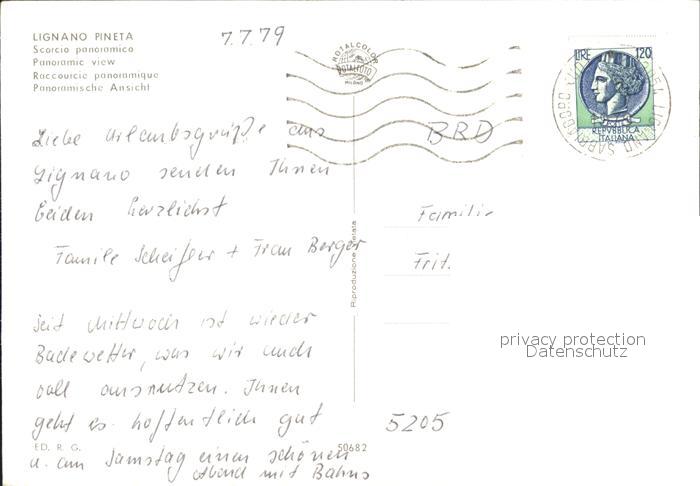 LIGNANO PINETA
Scorcio panoramico
Panoramic view
Raccourcie panoramique
Panoramische Ansicht
7.7.79
ROTALCOLOR
ROTALFOTO
MILANO
LIRE 120
REPVBBLICA
ITALIANA
Liebe Urlaubsgrüße aus
Lignano senden Ihnen
beiden herzlichst
Familie + Frau Berger
Seit Mittwoch ist wieder
Badewetter, was wir auch
voll ausnutzen. Ihnen
geht es hoffentlich gut
u. am Samstag einen schönen
Abend mit Bahns
BRD
Familie
Frit.
5205
Riproduzione vietata
privacy protection
Datenschutz
ED. R. G.
50682